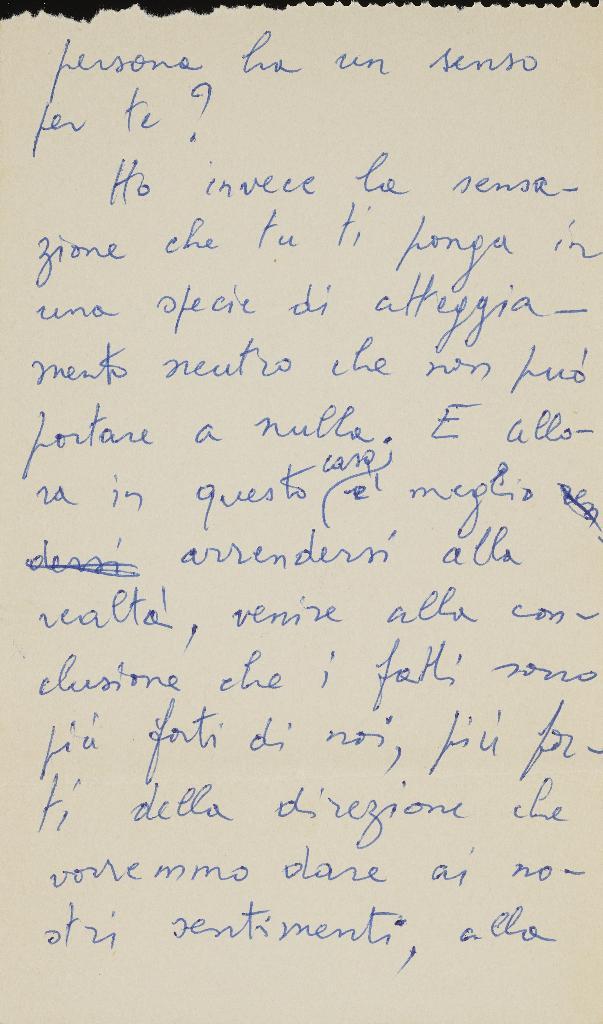 persona ha un senso
per te?
Ho invece la sensa-
zione che tu ti ponga in
una specie di atteggia-
mento neutro che non può
portare a nulla. E allo-
ra in questo caso è meglio ren-
dersi arrendersi alla
realtà, venire alla con-
clusione che i fatti sono
più forti di noi, più for-
ti della direzione che
vorremmo dare ai no-
stri sentimenti, alla